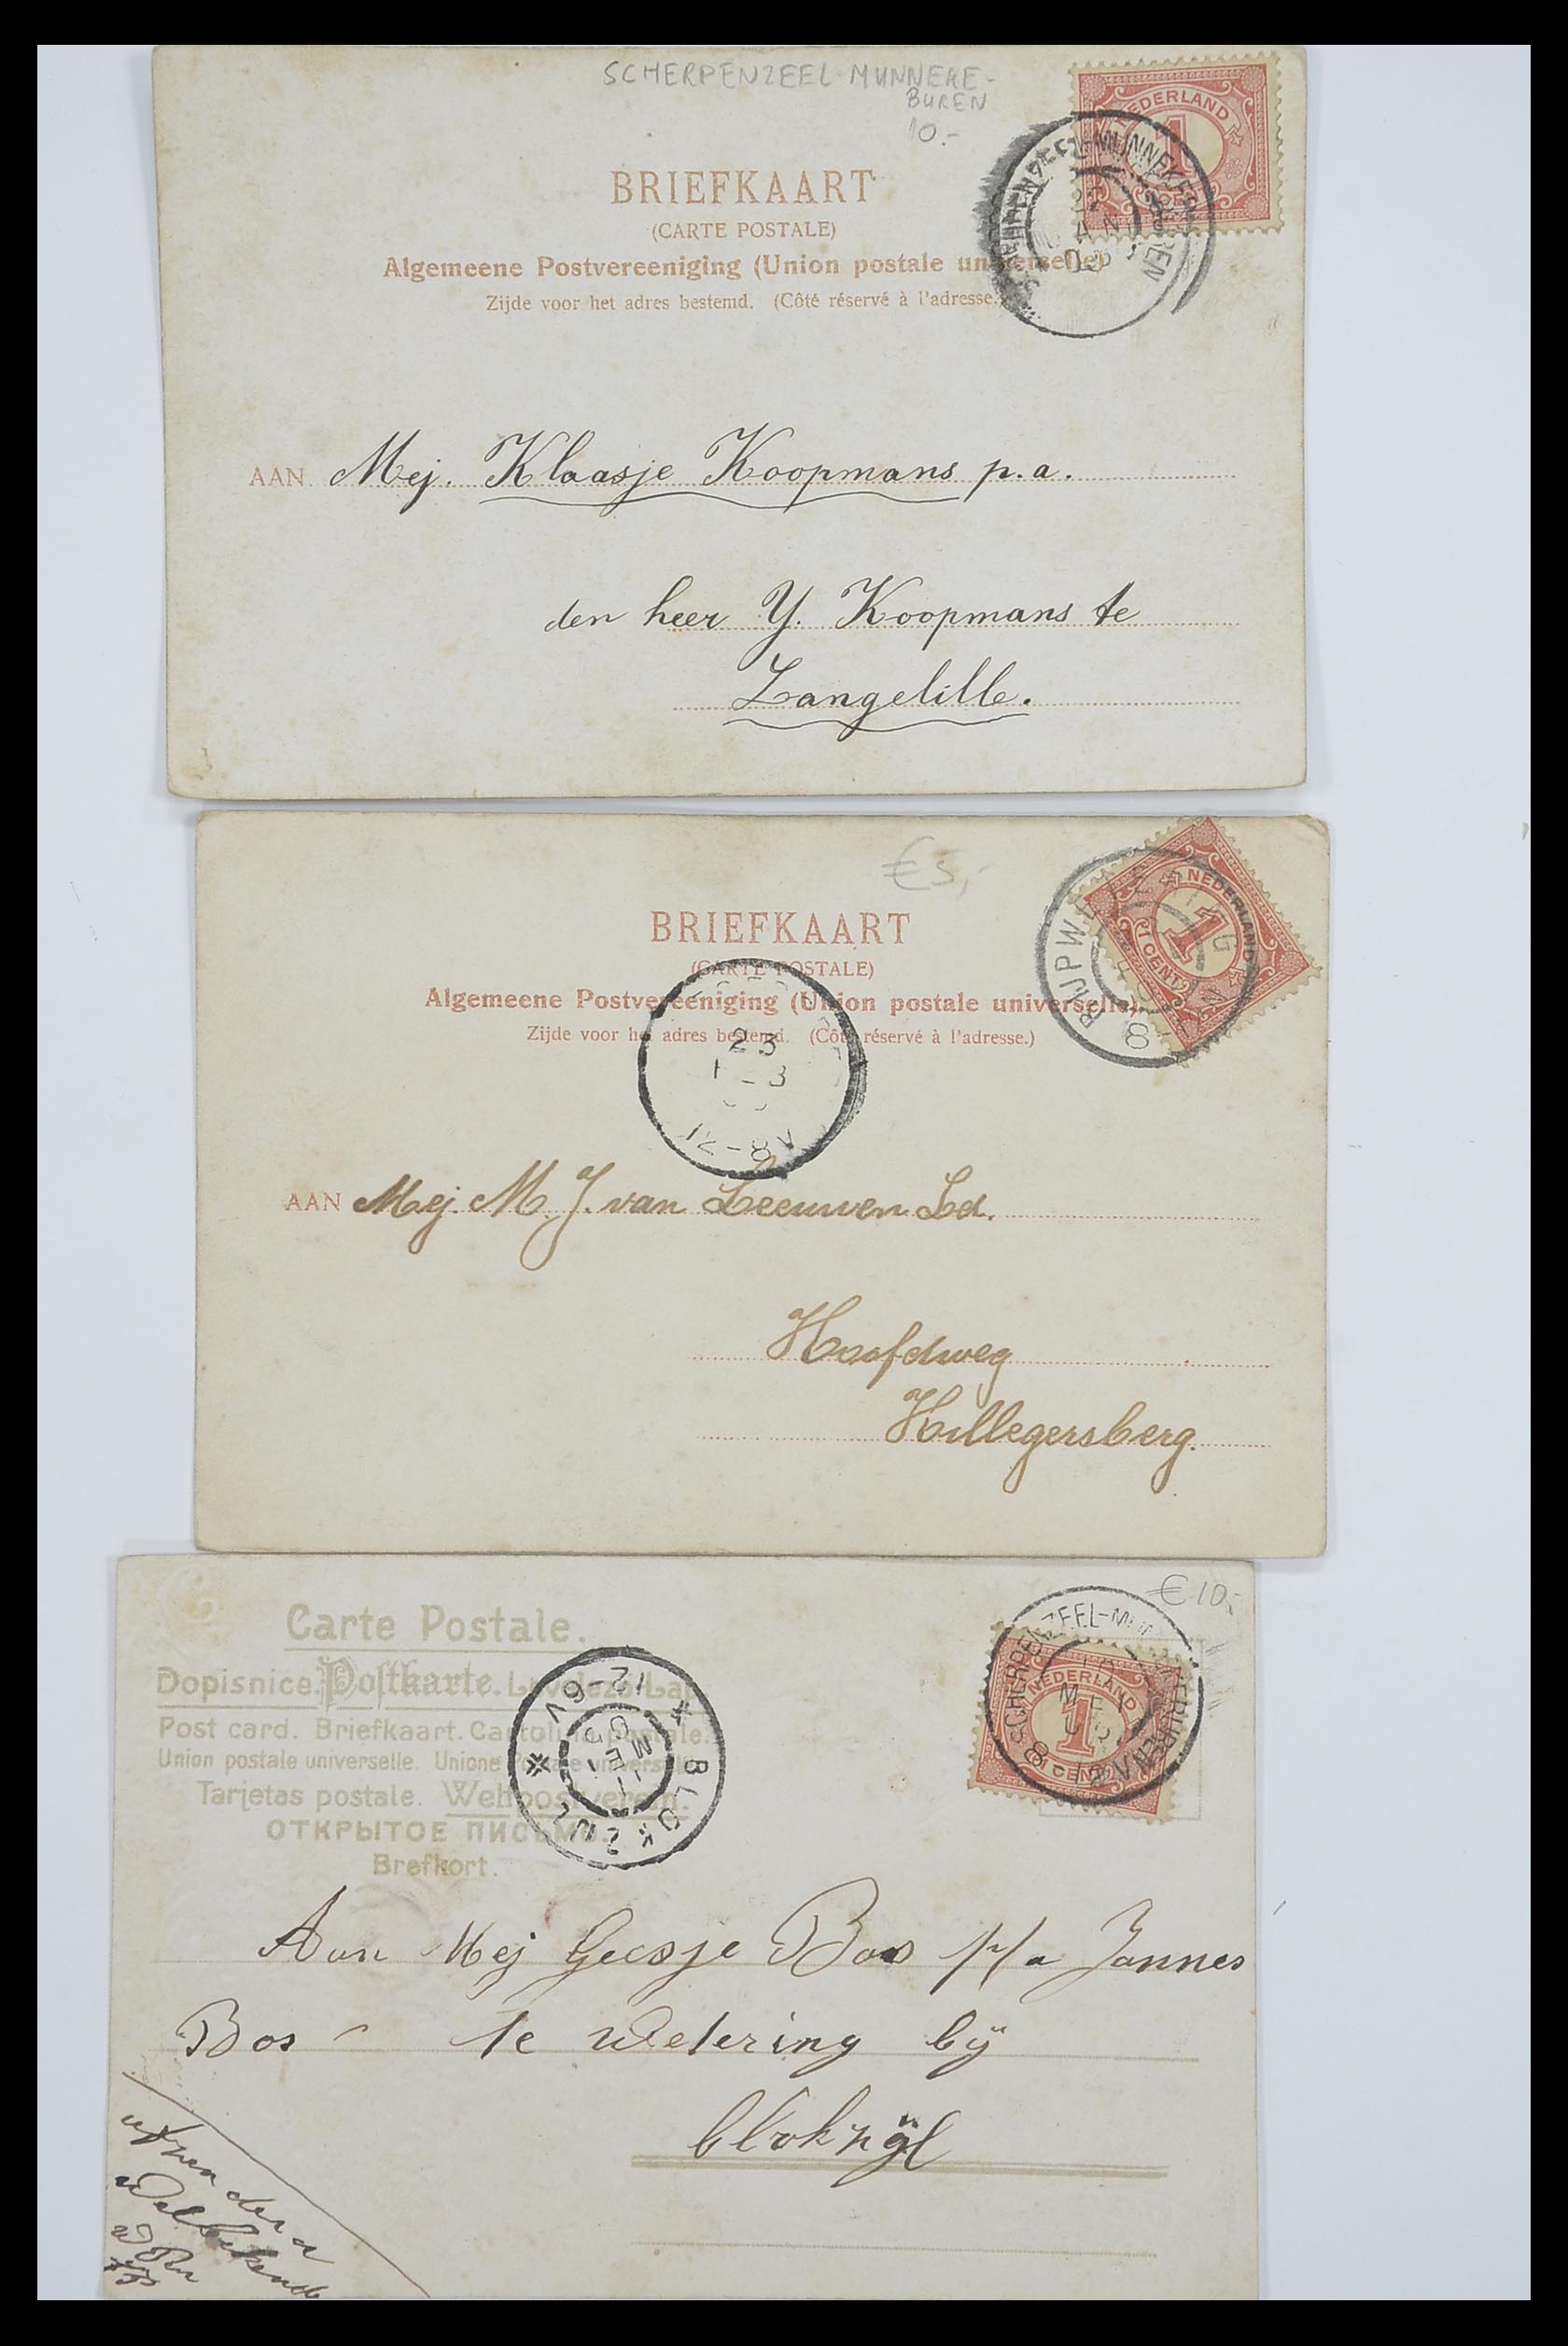 SCHERPENZEEL-MUNNEKE-
BUREN
10.-
NEDERLAND
1
BRIEFKAART
(CARTE POSTALE)
Algemeene Postvereeniging (Union postale universelle)
Zijde voor het adres bestemd. (Côté réservé à l'adresse.)
AAN Mej. Klaasje Koopmans p.a.
den heer Y. Koopmans te
Langelille.
€5,-
NEDERLAND
1
1 CENT
RIJPWETERING
BRIEFKAART
(CARTE POSTALE)
Algemeene Postvereeniging (Union postale universelle)
Zijde voor het adres bestemd. (Côté réservé à l'adresse.)
23
12-8V
AAN Mej. M. J. van Leeuwen Ld.
Hoofdweg
Hillegersberg.
€10,-
SCHERPENZEEL-MUNNEKEBUREN
NEDERLAND
1
CENT
Carte Postale.
Dopisnice. Postkarte. Levelező-Lap
Post card. Briefkaart. Cartolina postale.
Union postale universelle. Unione Postale universale
Tarjetas postale. Weltpostverein.
ОТКРЫТОЕ ПИСЬМО.
Brefkort.
BLOKZIJL
12-6V
MEI
Aan Mej Geesje Bos p/a Jannes
Bos - te Wetering bij
blokzijl